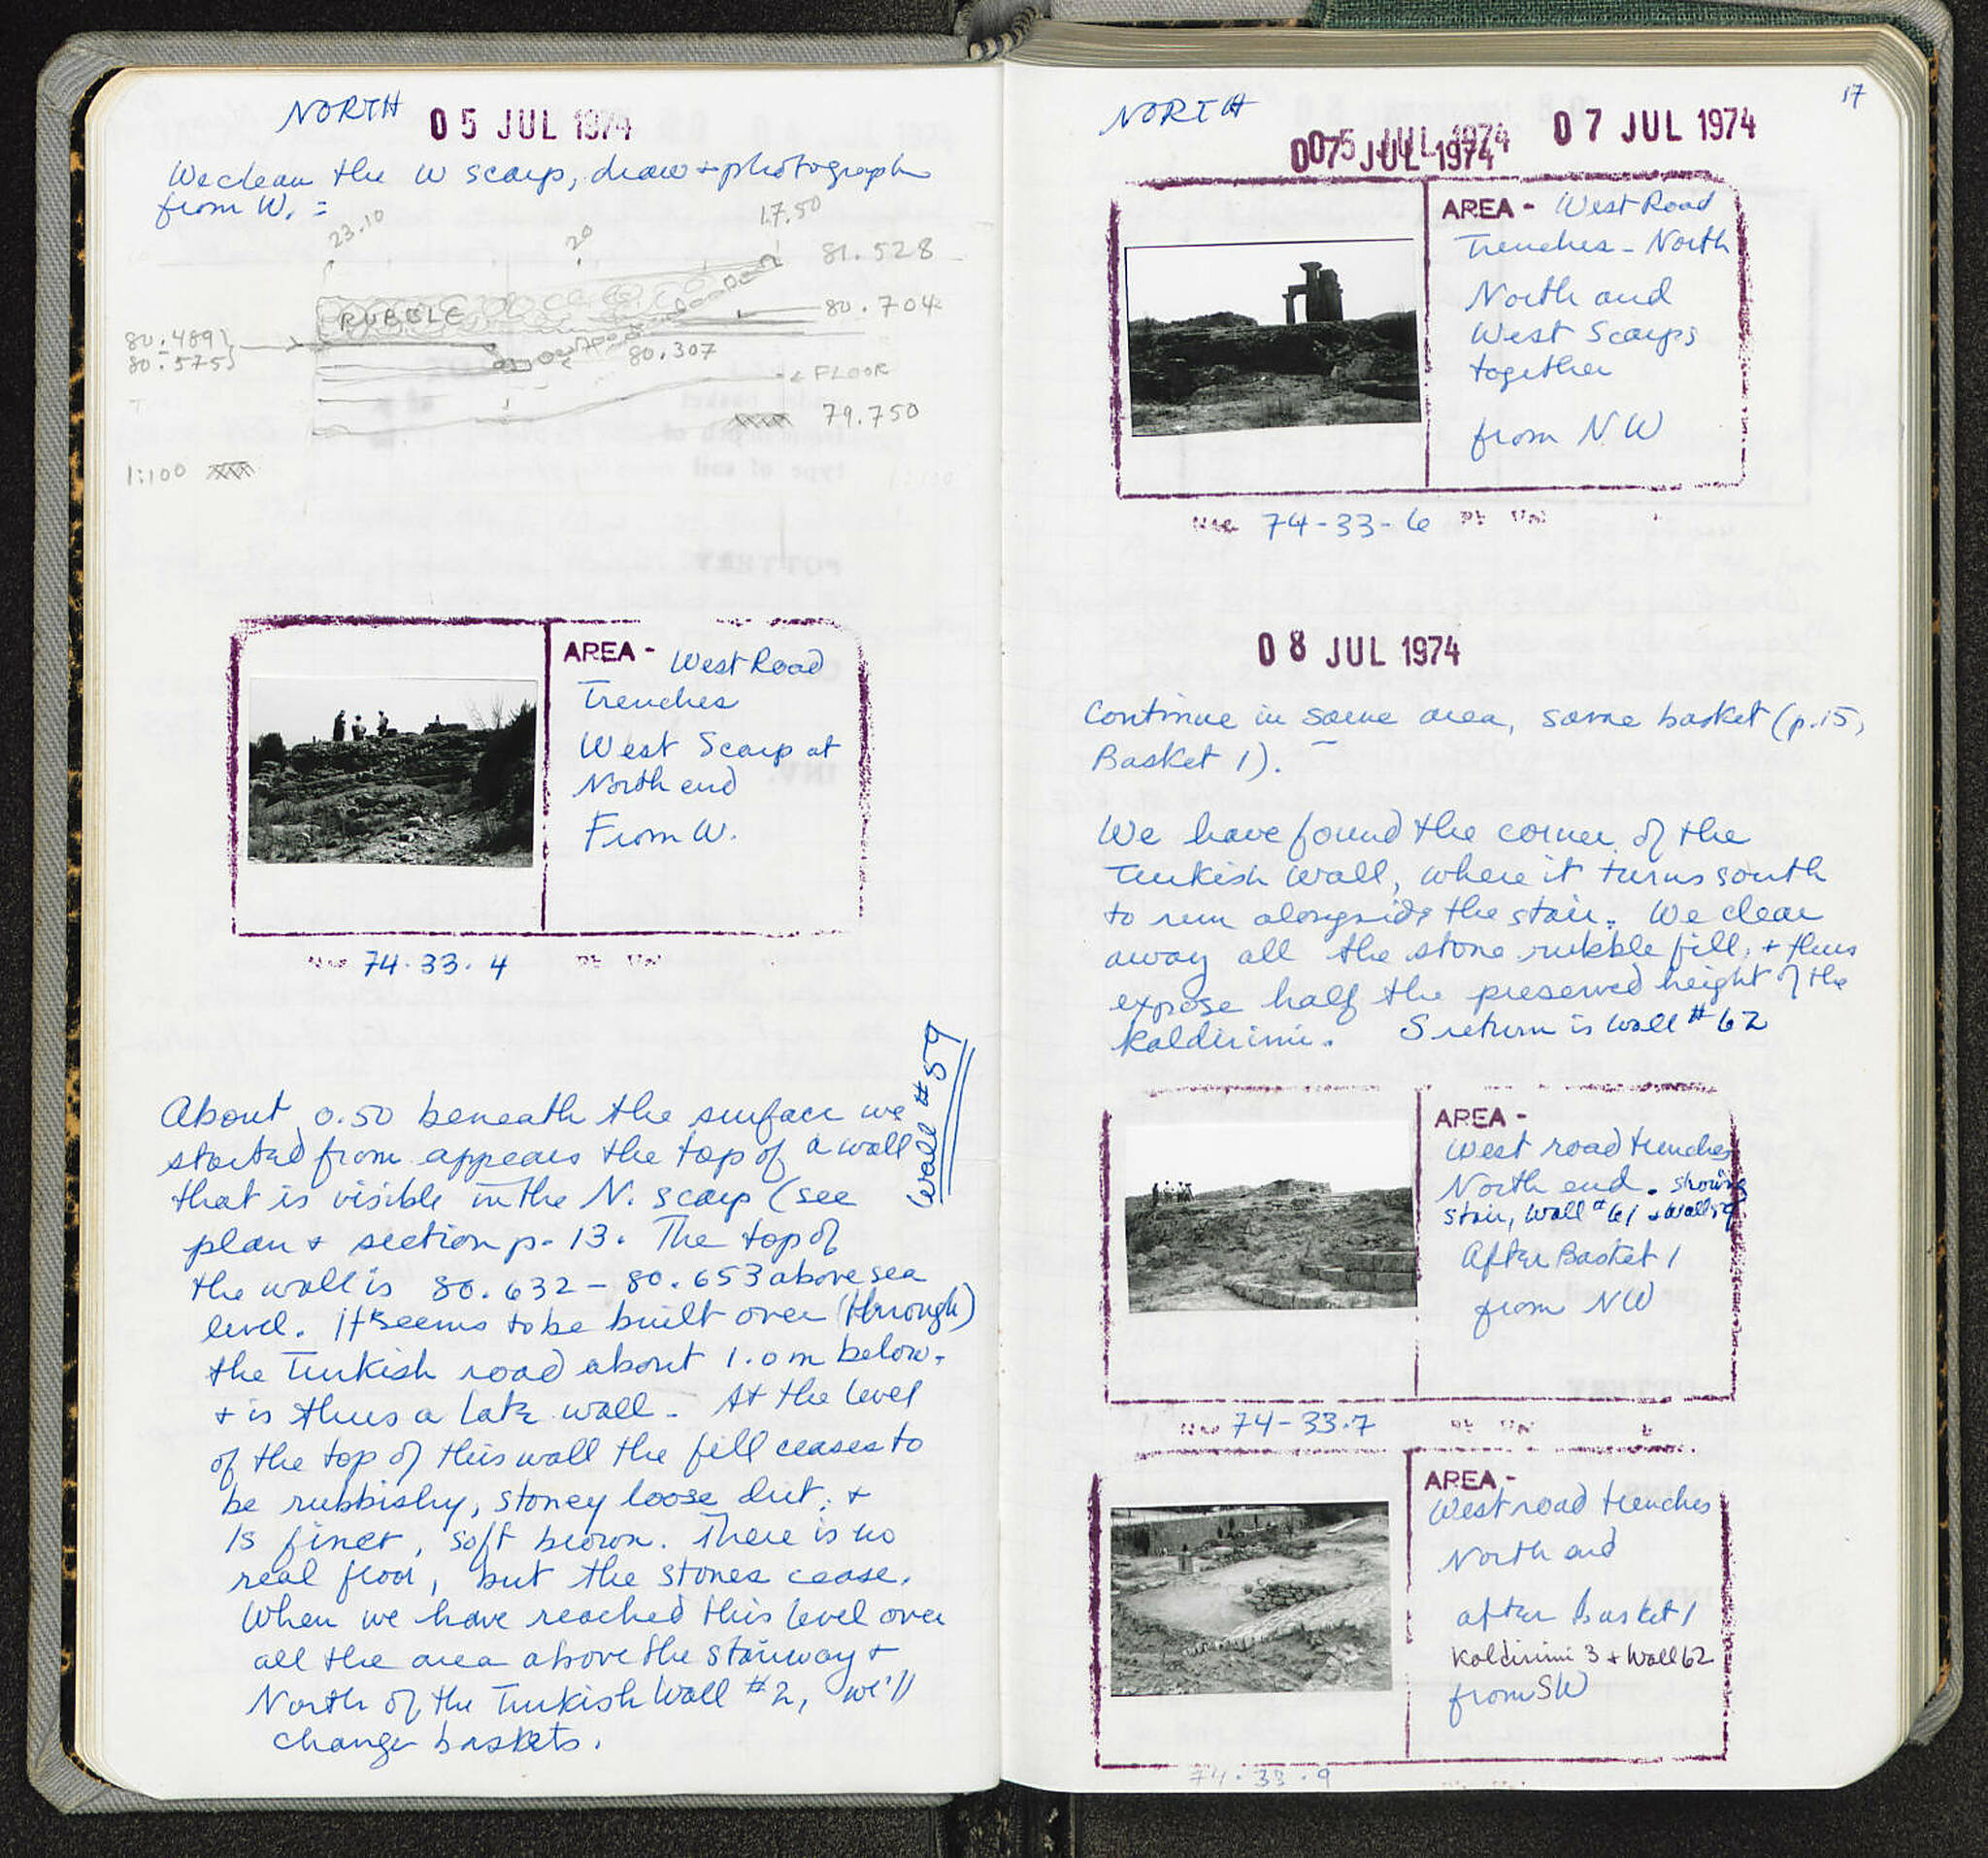 NORTH 05 JUL 1974
We clean the W scarp, draw + photograph
from W. =
23.10 20 17.50
81.528
RUBBLE
80.704
80.489
80.575
80.307
FLOOR
79.750
1:100
AREA - West Road
Trenches
West Scarp at
North end
From W.
74.33.4
Wall #59
About 0.50 beneath the surface we
started from appears the top of a wall
that is visible in the N. scarp (see
plan + section p. 13. The top of
the wall is 80.632 - 80.653 above sea
level. It seems to be built over (through)
the Turkish road about 1.0 m below,
+ is thus a late wall. At the level
of the top of this wall the fill ceases to
be rubbishy, stoney loose dirt, +
is finer, soft brown. There is no
real floor, but the stones cease.
When we have reached this level over
all the area above the stairway +
North of the Turkish Wall #2, we'll
change baskets.
17
NORTH
07 JUL 1974
AREA - West Road
Trenches - North
North and
West Scarps
together
from NW
74-33-6
08 JUL 1974
Continue in same area, same basket (p.15,
Basket 1).
We have found the corner of the
Turkish wall, where it turns south
to run alongside the stair. We clear
away all the stone rubble fill, + thus
expose half the preserved height of the
kaldirimi. S return is wall #62
AREA -
West road trenches
North end. showing
stair, Wall #61 + Wall 59
After Basket 1
from NW
74-33.7
AREA -
West road trenches
North end
after Basket 1
kaldirimi 3 + Wall 62
from SW
74.33.9